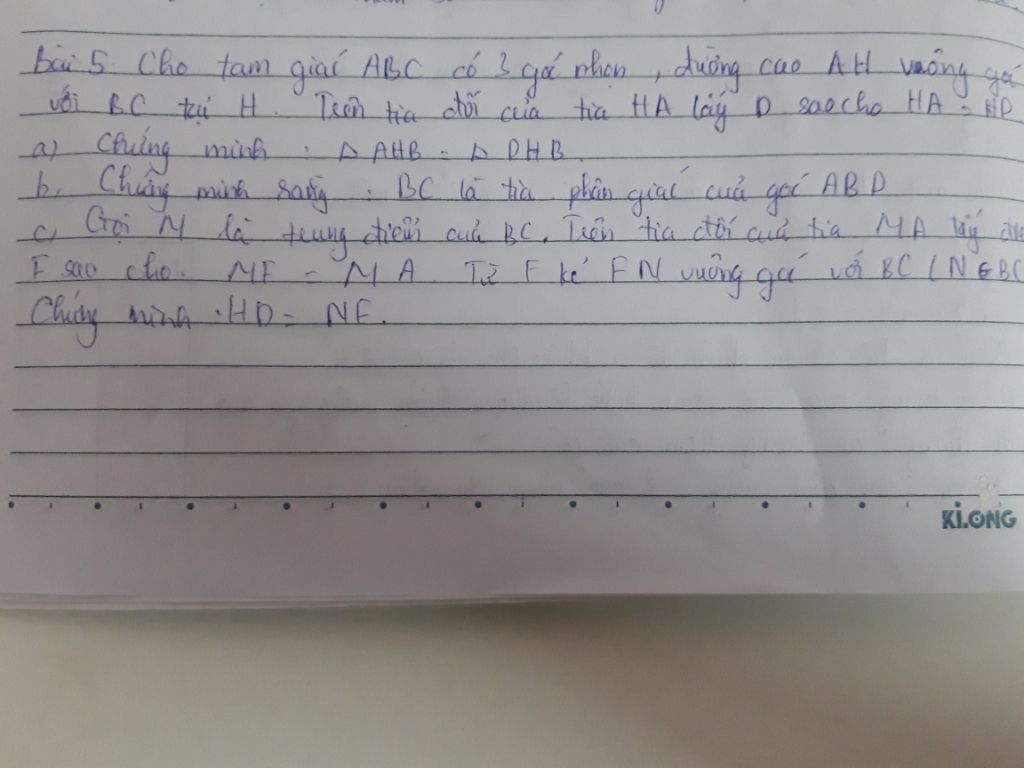 Bài 5. Cho tam giác ABC có 3 góc nhọn, đường cao AH vuông góc
với BC tại H. Trên tia đối của tia HA lấy D sao cho HA = HD
a) Chứng minh: Δ AHB = Δ DHB.
b, Chứng minh rằng: BC là tia phân giác của góc ABD
c, Gọi M là trung điểm của BC. Trên tia đối của tia MA lấy
F sao cho. MF = MA. Từ F kẻ FN vuông góc với BC (N ∈ BC
Chứng minh: HD = NF.
KI.ONG